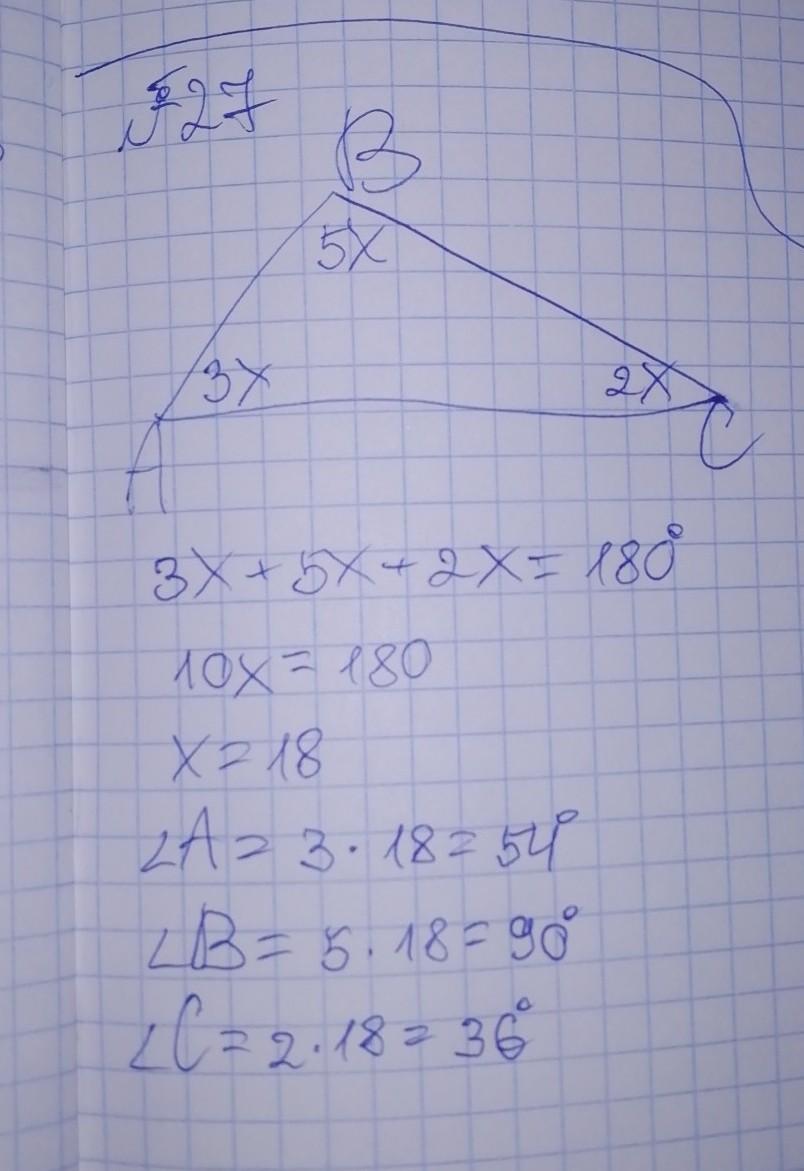 №27
B
5x
3x 2x
A C
3x + 5x + 2x = 180°
10x = 180
x = 18
∠A = 3 · 18 = 54°
∠B = 5 · 18 = 90°
∠C = 2 · 18 = 36°